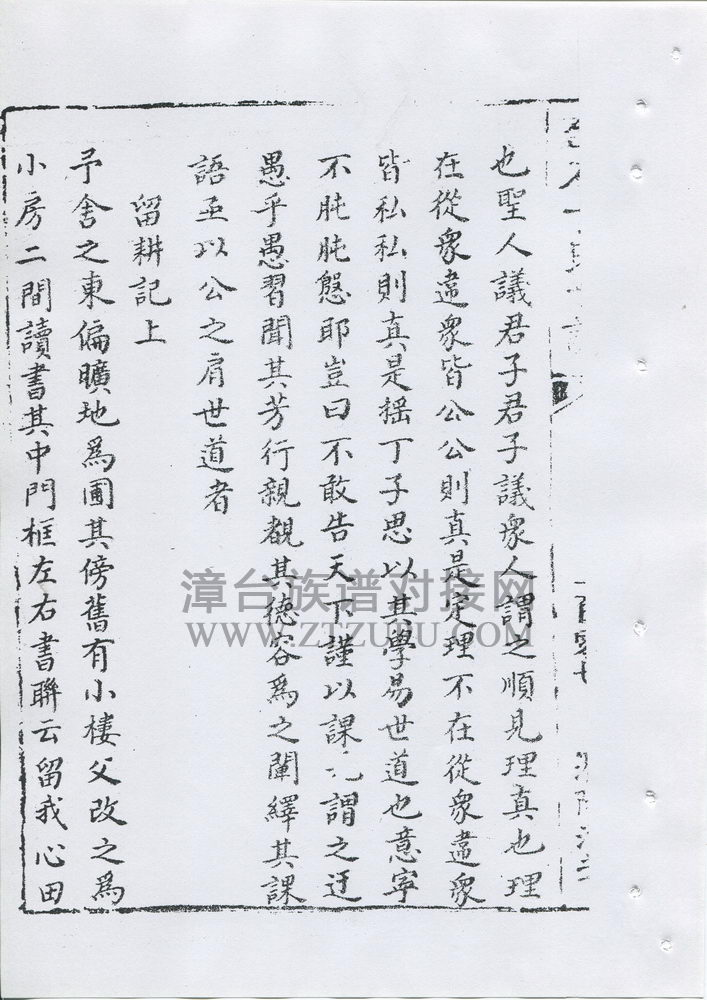 也聖人議君子君子議衆人謂之順見理真也理
在從衆違衆皆公公則真是定理不在從衆違衆
皆私私則真是摇丁子思以其學易世道也意寧
不肫肫慇耶豈曰不敢告天下謹以課謂之迂
愚乎愚習聞其芳行親覩其德容為之闡繹其課
語亟以公之肩世道者
留耕記上
予舍之東偏曠地爲圃其傍舊有小樓父改之爲
小房二間讀書其中門框左右書聯云留我心田
漳台族谱对接网
WWW.ZTZUPU.COM